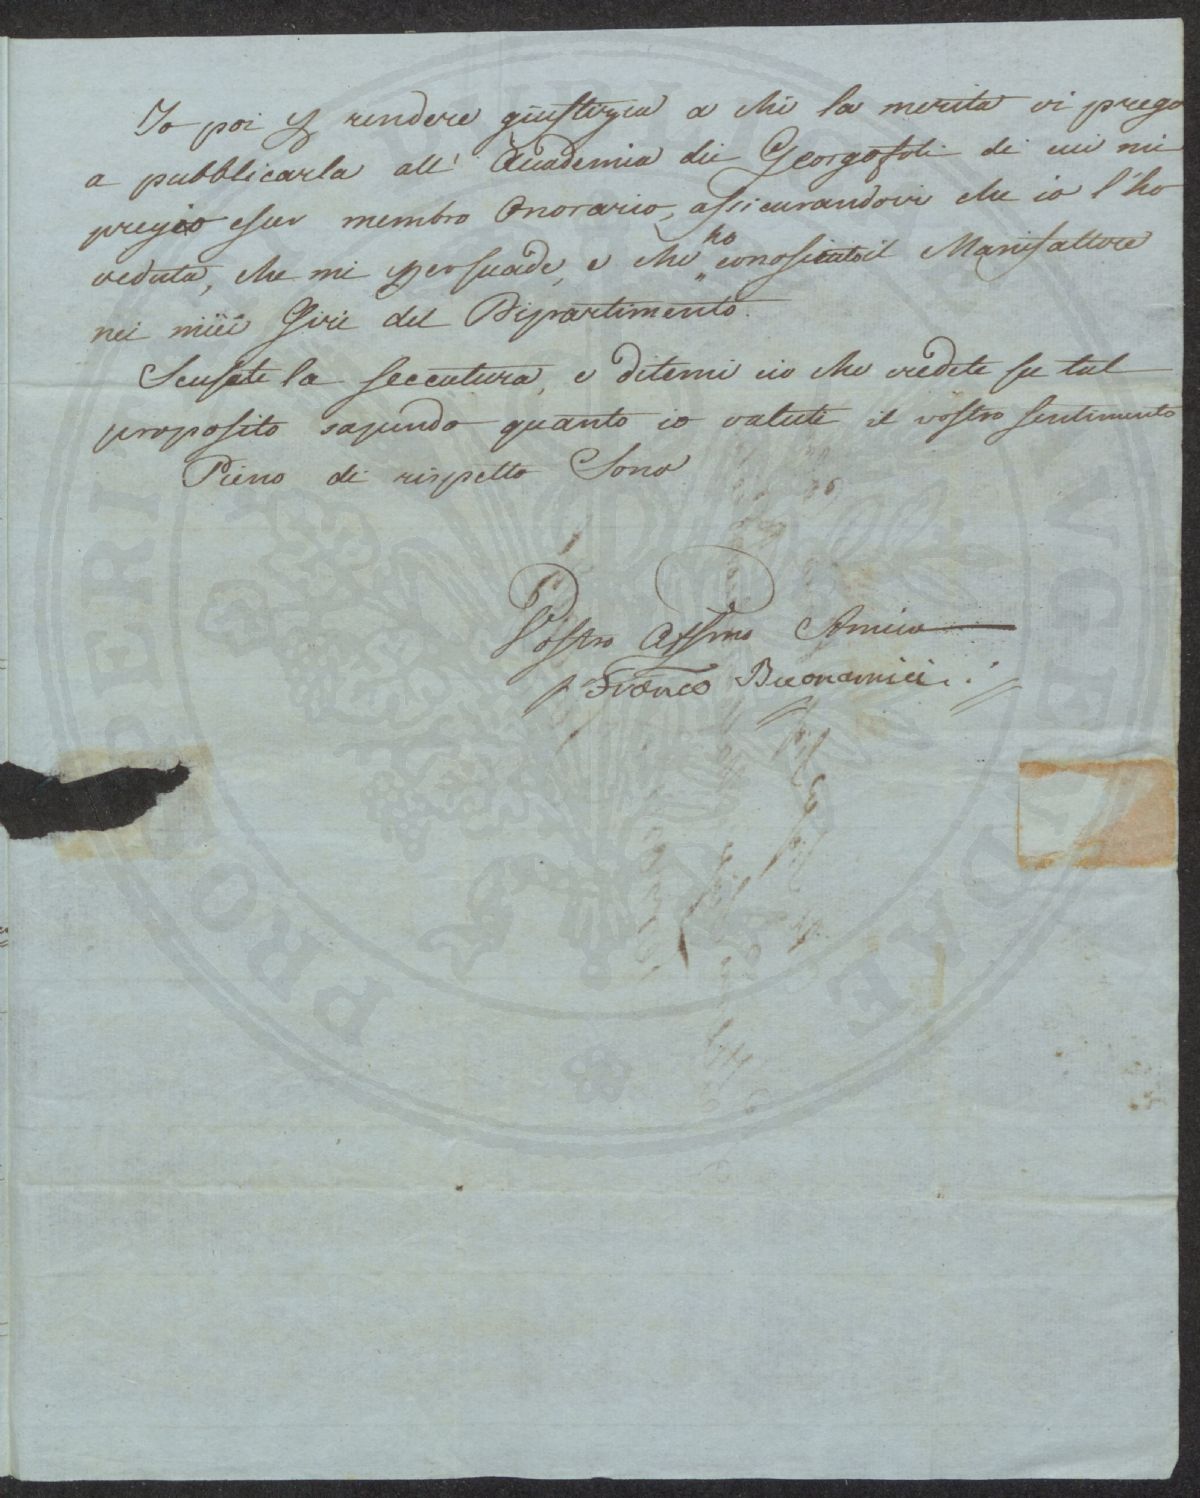 Io poi p rendere giustizia a chi la merita vi prego
a pubblicarla all' Accademia dei Georgofoli di cui mi
pregio esser membro Onorario, assicurandovi che io l'ho
veduta, che mi persuade, e che ho conosciuto il Manifattore
nei miei Giri del Dipartimento.
Scusate la seccatura, e ditemi ciò che credete su tal
proposito sapendo quanto io valuti il vostro sentimento
Pieno di rispetto Sono
Vostro Affmo Amico
Franco Buonamici
PRODERITATI PUBLICAE AVGENDAE